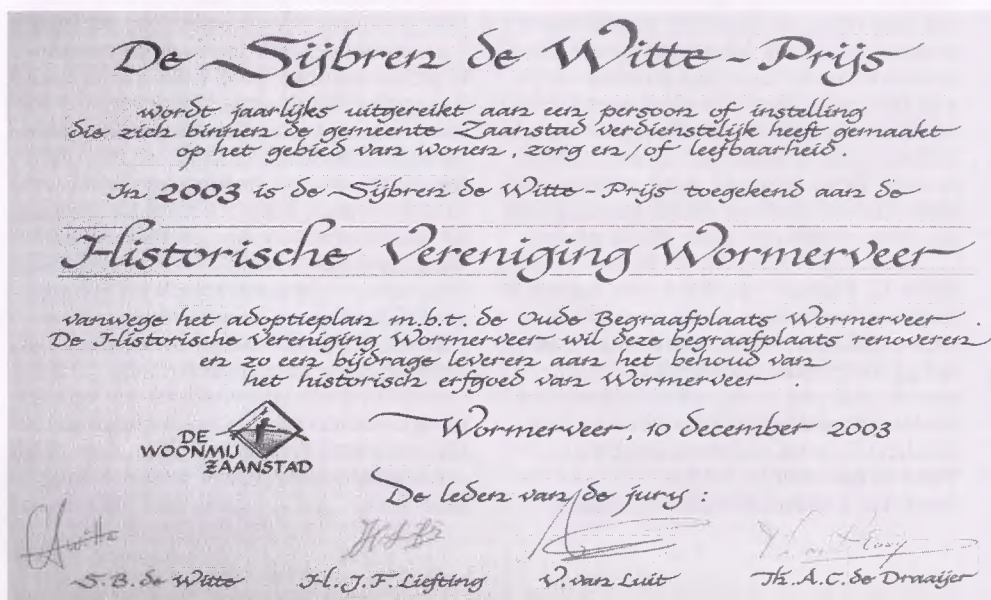 De Sijbren de Witte - Prijs
wordt jaarlijks uitgereikt aan een persoon of instelling
die zich binnen de gemeente Zaanstad verdienstelijk heeft gemaakt
op het gebied van wonen, zorg en/of leefbaarheid.
In 2003 is de Sijbren de Witte - Prijs toegekend aan de
Historische Vereniging Wormerveer
vanwege het adoptieplan m.b.t. de Oude Begraafplaats Wormerveer.
De Historische Vereniging Wormerveer wil deze begraafplaats renoveren
en zo een bijdrage leveren aan het behoud van
het historisch erfgoed van Wormerveer.
DE
WOONMIJ
ZAANSTAD
Wormerveer, 10 december 2003
De leden van de jury:
S.B. de Witte H.J.F. Liefting V. van Luit Th.A.C. de Draaijer